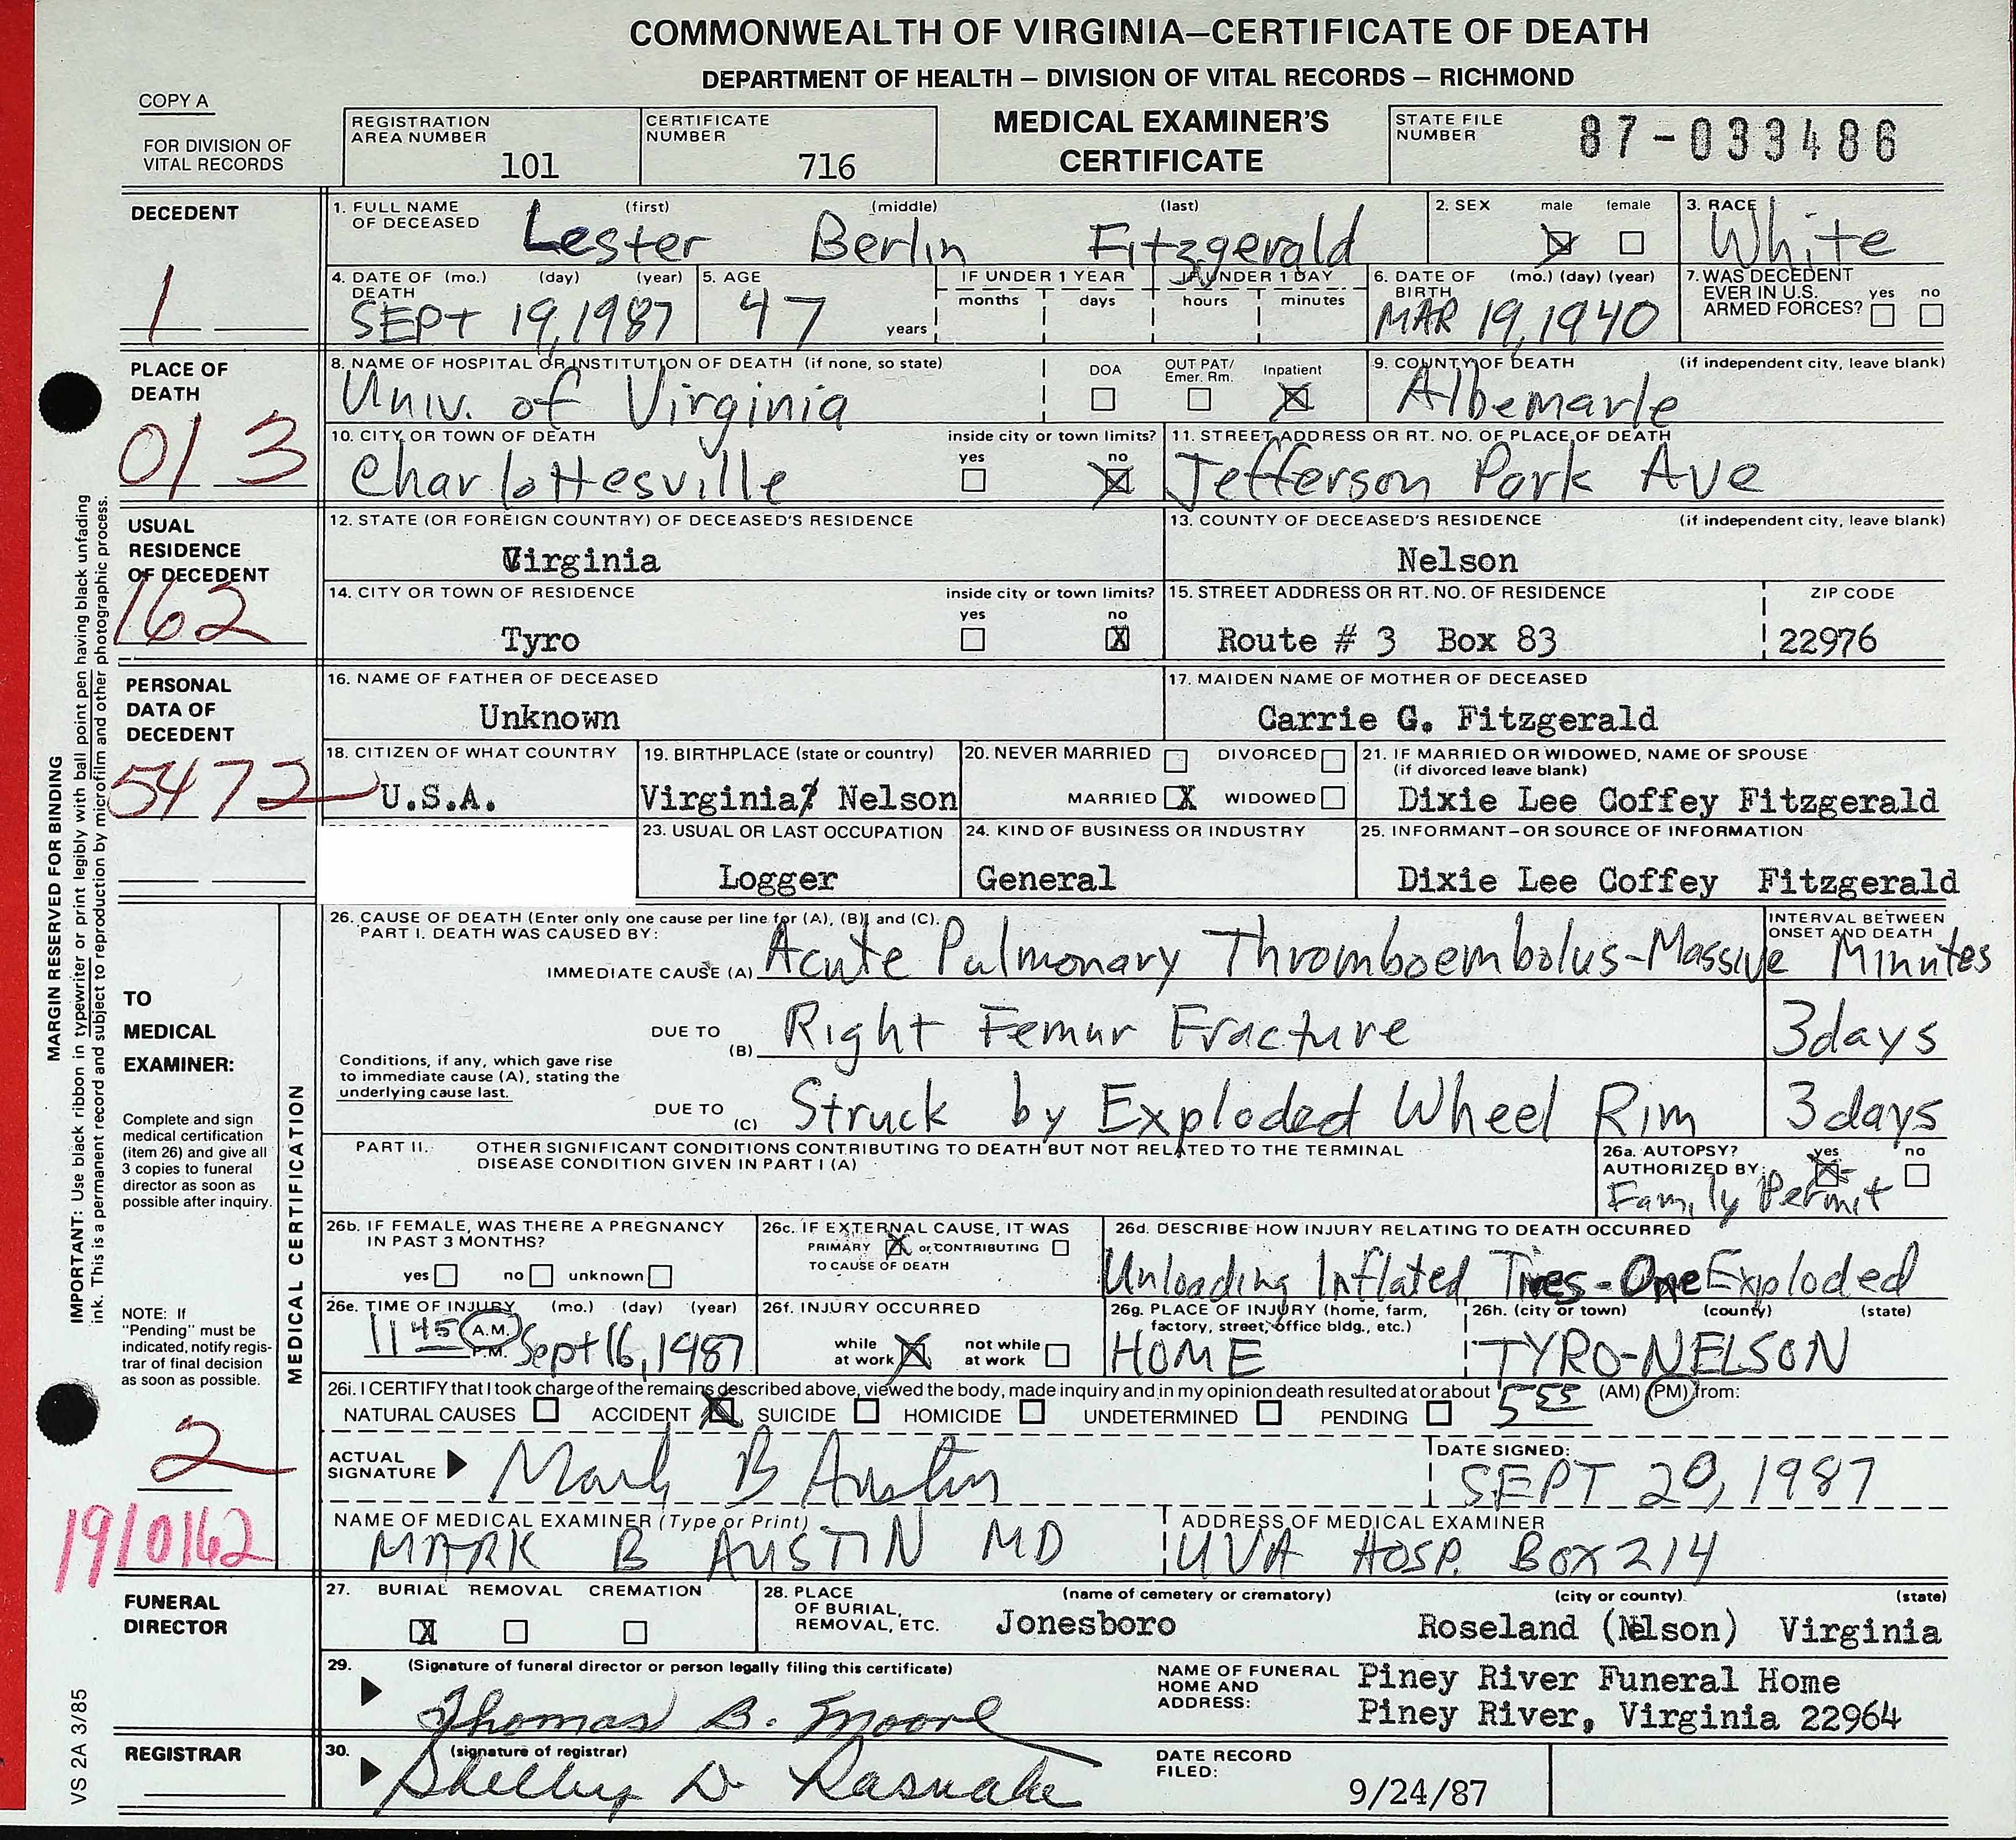 COMMONWEALTH OF VIRGINIA—CERTIFICATE OF DEATH
DEPARTMENT OF HEALTH — DIVISION OF VITAL RECORDS — RICHMOND
COPY A
FOR DIVISION OF
VITAL RECORDS
REGISTRATION
AREA NUMBER
101
CERTIFICATE
NUMBER
716
MEDICAL EXAMINER'S
CERTIFICATE
STATE FILE
NUMBER
87-033486
DECEDENT
1
1. FULL NAME
OF DECEASED
(first) (middle) (last)
Lester Berlin Fitzgerald
2. SEX male female
3. RACE
White
4. DATE OF (mo.) (day) (year)
DEATH
SEPT 19, 1987
5. AGE
47
years
IF UNDER 1 YEAR
months days
IF UNDER 1 DAY
hours minutes
6. DATE OF (mo.) (day) (year)
BIRTH
MAR 19, 1940
7. WAS DECEDENT
EVER IN U.S.
ARMED FORCES? yes no
PLACE OF
DEATH
01 3
8. NAME OF HOSPITAL OR INSTITUTION OF DEATH (if none, so state)
Univ. of Virginia
DOA OUT PAT/
Emer. Rm. Inpatient
9. COUNTY OF DEATH (if independent city, leave blank)
Albemarle
10. CITY OR TOWN OF DEATH
Charlottesville
inside city or town limits?
yes no
11. STREET ADDRESS OR RT. NO. OF PLACE OF DEATH
Jefferson Park Ave
USUAL
RESIDENCE
OF DECEDENT
162
12. STATE (OR FOREIGN COUNTRY) OF DECEASED'S RESIDENCE
Virginia
13. COUNTY OF DECEASED'S RESIDENCE (if independent city, leave blank)
Nelson
14. CITY OR TOWN OF RESIDENCE
Tyro
inside city or town limits?
yes no
X
15. STREET ADDRESS OR RT. NO. OF RESIDENCE
Route # 3 Box 83
ZIP CODE
22976
PERSONAL
DATA OF
DECEDENT
5472
16. NAME OF FATHER OF DECEASED
Unknown
17. MAIDEN NAME OF MOTHER OF DECEASED
Carrie G. Fitzgerald
18. CITIZEN OF WHAT COUNTRY
U.S.A.
19. BIRTHPLACE (state or country)
Virginia, Nelson
20. NEVER MARRIED DIVORCED
MARRIED X WIDOWED
21. IF MARRIED OR WIDOWED, NAME OF SPOUSE
(if divorced leave blank)
Dixie Lee Coffey Fitzgerald
23. USUAL OR LAST OCCUPATION
Logger
24. KIND OF BUSINESS OR INDUSTRY
General
25. INFORMANT—OR SOURCE OF INFORMATION
Dixie Lee Coffey Fitzgerald
MARGIN RESERVED FOR BINDING
IMPORTANT: Use black ribbon in typewriter or print legibly with ball point pen having black unfading
ink. This is a permanent record and subject to reproduction by microfilm and other photographic process.
TO
MEDICAL
EXAMINER:
Complete and sign
medical certification
(item 26) and give all
3 copies to funeral
director as soon as
possible after inquiry.
NOTE: If
"Pending" must be
indicated, notify regis-
trar of final decision
as soon as possible.
2
19/0162
MEDICAL CERTIFICATION
26. CAUSE OF DEATH (Enter only one cause per line for (A), (B), and (C).
PART I. DEATH WAS CAUSED BY:
INTERVAL BETWEEN
ONSET AND DEATH
IMMEDIATE CAUSE (A) Acute Pulmonary Thromboembolus-Massive Minutes
DUE TO (B) Right Femur Fracture 3 days
Conditions, if any, which gave rise
to immediate cause (A), stating the
underlying cause last.
DUE TO (C) Struck by Exploded Wheel Rim 3 days
PART II. OTHER SIGNIFICANT CONDITIONS CONTRIBUTING TO DEATH BUT NOT RELATED TO THE TERMINAL
DISEASE CONDITION GIVEN IN PART I (A)
26a. AUTOPSY? yes no
AUTHORIZED BY:
Family Permit
26b. IF FEMALE, WAS THERE A PREGNANCY
IN PAST 3 MONTHS?
yes no unknown
26c. IF EXTERNAL CAUSE, IT WAS
PRIMARY or CONTRIBUTING
TO CAUSE OF DEATH
26d. DESCRIBE HOW INJURY RELATING TO DEATH OCCURRED
Unloading Inflated Tires - One Exploded
26e. TIME OF INJURY (mo.) (day) (year)
11 45 A.M. P.M. Sept 16, 1987
26f. INJURY OCCURRED
while
at work
not while
at work
26g. PLACE OF INJURY (home, farm,
factory, street, office bldg., etc.)
HOME
26h. (city or town) (county) (state)
TYRO-NELSON
26i. I CERTIFY that I took charge of the remains described above, viewed the body, made inquiry and in my opinion death resulted at or about 5 55 (AM) (PM) from:
NATURAL CAUSES ACCIDENT SUICIDE HOMICIDE UNDETERMINED PENDING
ACTUAL
SIGNATURE
Mark B Austin
DATE SIGNED:
SEPT 20, 1987
NAME OF MEDICAL EXAMINER (Type or Print)
MARK B AUSTIN MD
ADDRESS OF MEDICAL EXAMINER
UVA HOSP. BOX 214
FUNERAL
DIRECTOR
27. BURIAL REMOVAL CREMATION
X
28. PLACE
OF BURIAL,
REMOVAL, ETC.
(name of cemetery or crematory) (city or county) (state)
Jonesboro Roseland (Nelson) Virginia
29. (Signature of funeral director or person legally filing this certificate)
Thomas B. Moore
NAME OF FUNERAL
HOME AND
ADDRESS:
Piney River Funeral Home
Piney River, Virginia 22964
REGISTRAR
30. (signature of registrar)
Shelby D Rasnake
DATE RECORD
FILED:
9/24/87
VS 2A 3/85